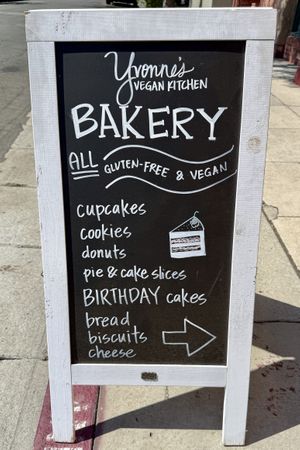 Yvonne's
VEGAN KITCHEN
BAKERY
ALL GLUTEN-FREE & VEGAN
cupcakes
cookies
donuts
pie & cake slices
BIRTHDAY cakes
bread
biscuits
cheese